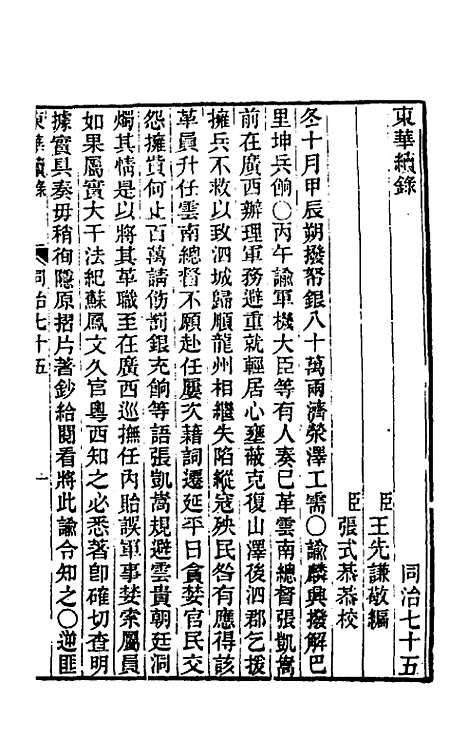 東華續錄
同治七十五
臣王先謙敬編
臣張式恭恭校
冬十月甲辰朔撥帑銀八十萬兩濟滎澤工需〇諭麟興撥解巴
里坤兵餉〇丙午諭軍機大臣等有人奏已革雲南總督張凱嵩
前在廣西辦理軍務避重就輕居心壅蔽克復山澤後泗郡乞援
擁兵不救以致泗城歸順龍州相繼失陷縱寇殃民咎有應得該
革員升任雲南總督不願赴任屢次藉詞遷延平日貪婪官民交
怨擁貲何止百萬請飭罰銀充餉等語張凱嵩規避雲貴朝廷洞
燭其情是以將其革職至在廣西巡撫任內貽誤軍事婪索屬員
如果屬實大干法紀蘇鳳文久官粵西知之必悉著卽確切查明
據實具奏毋稍徇隱原摺片著鈔給閱看將此諭令知之〇逆匪
東華續錄
同治七十五
一